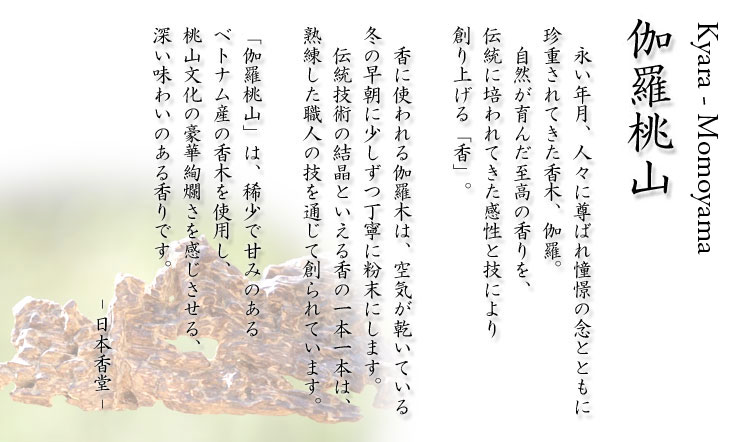 Kyara - Momoyama
伽羅桃山
永い年月、人々に尊ばれ憧憬の念とともに
珍重されてきた香木、伽羅。
自然が育んだ至高の香りを、
伝統に培われてきた感性と技により
創り上げる「香」。
香に使われる伽羅木は、空気が乾いている
冬の早朝に少しずつ丁寧に粉末にします。
伝統技術の結晶といえる香の一本一本は、
熟練した職人の技を通じて創られています。
「伽羅桃山」は、稀少で甘みのある
ベトナム産の香木を使用し、
桃山文化の豪華絢爛さを感じさせる、
深い味わいのある香りです。
– 日本香堂 –